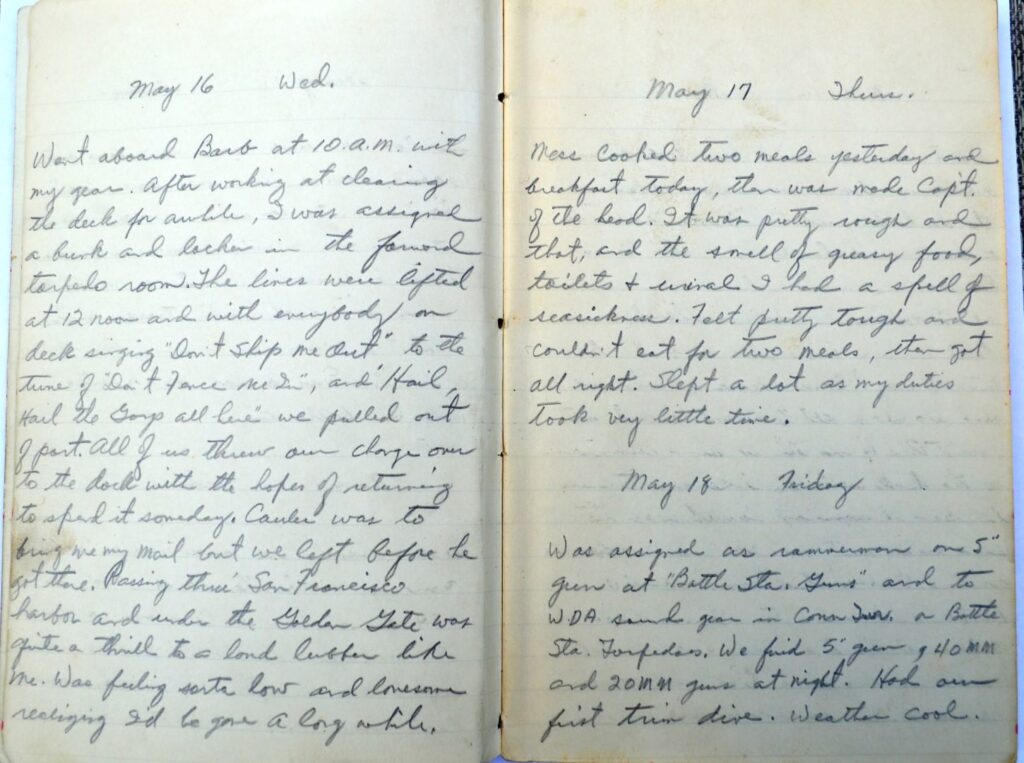 May 16 Wed.
Went aboard Barb at 10.A.M. with
my gear. After working at clearing
the deck for awhile, I was assigned
a bunk and locker in the forward
torpedo room. The lines were lifted
at 12 noon and with everybody on
deck singing "Don't Ship Me Out" to the
tune of "Don't Fence Me In", and "Hail,
Hail the Gangs all here" we pulled out
of port. All of us threw our change over
to the dock with the hopes of returning
to spend it someday. was to
bring me my mail but we left before he
got there. Passing thru' San Francisco
harbor and under the Golden Gate was
quite a thrill to a land lubber like
me. Was feeling sorta low and lonesome
realizing I'd be gone a long while.
May 17 Thurs.
Mess cooked two meals yesterday and
breakfast today, then was made Capt.
of the head. It was pretty rough and
that, and the smell of greasy food,
toilets & urinal I had a spell of
seasickness. Felt pretty tough and
couldn't eat for two meals, then got
all right. Slept a lot as my duties
took very little time.
May 18 Friday
Was assigned as rammerman on 5"
gun at "Battle Sta. Guns" and to
WDA sound gear in Conn Tow. on Battle
Sta. Torpedoes. We fired 5" gun, 40MM
and 20MM guns at night. Had our
first trim dive. Weather cool.